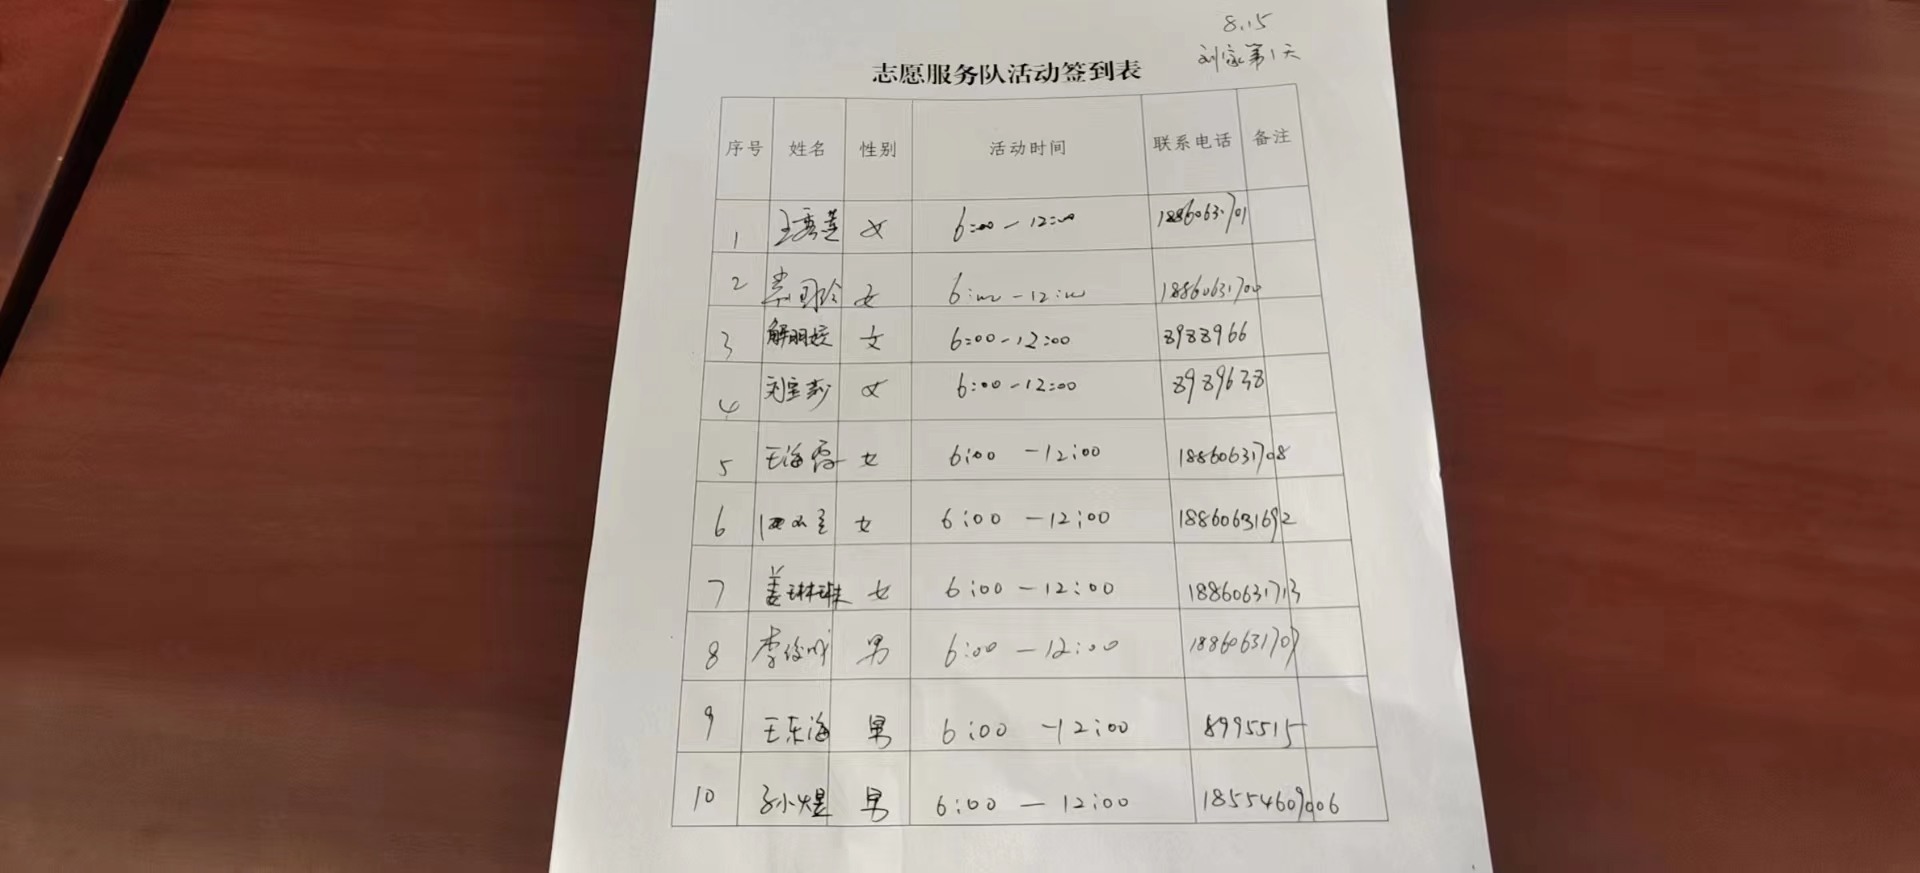 8.15
刘家第1天
志愿服务队活动签到表
序号 姓名 性别 活动时间 联系电话 备注
1 王秀莲 女 6:00-12:00 18860631701
2 女 6:00-12:00 18860631704
3 解明姣 女 6:00-12:00 8988966
4 刘宝莉 女 6:00-12:00 8989638
5 王海霞 女 6:00-12:00 18860631708
6 女 6:00-12:00 18860631692
7 姜琳琳 女 6:00-12:00 18860631713
8 李俊成 男 6:00-12:00 18860631707
9 王东海 男 6:00-12:00 8995515
10 孙小煜 男 6:00-12:00 18554609006